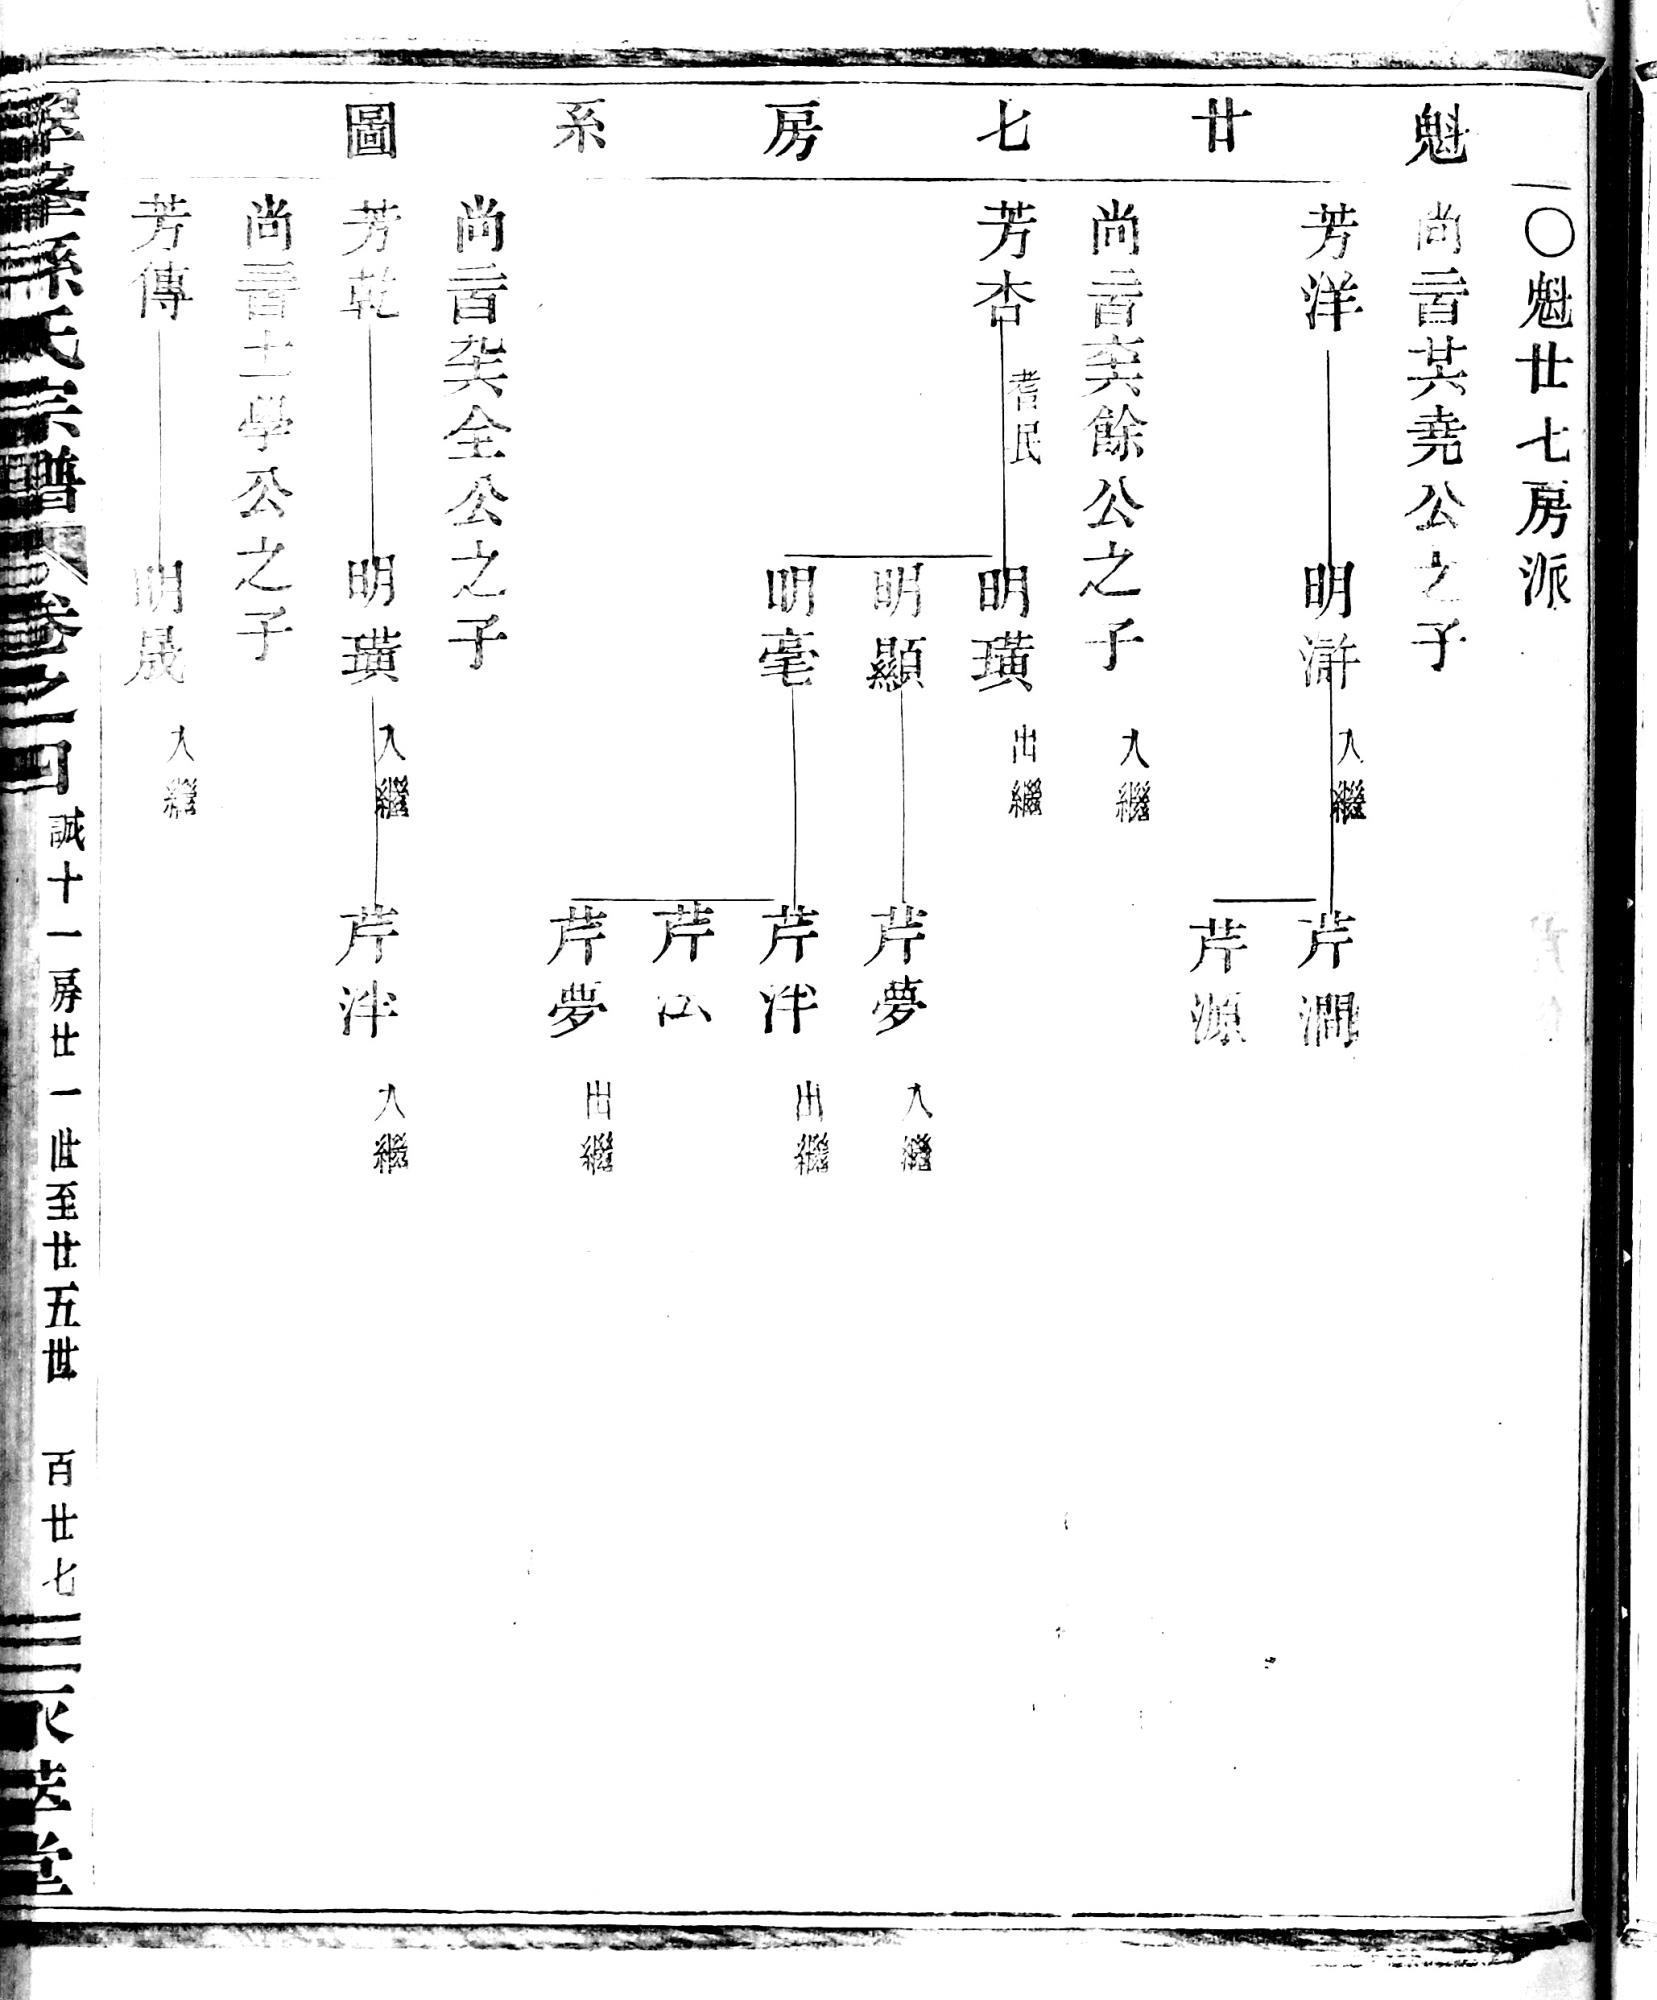 魁廿七房系圖
〇魁廿七房派
尚二百廿六堯公之子
芳洋
明滸 入繼
芹澗
芹源
尚二百餘公之子 入繼
芳杏 耆民
明璜 出繼
明顯
芹夢 入繼
明毫
芹泮 出繼
芹泓
芹夢 出繼
尚二百全公之子
芳乾
明璜 入繼
芹泮 入繼
尚三百學公之子
芳傳
明晟 入繼
孫氏宗譜 卷之四 誠十一房廿一世至廿五世 百廿七 永萃堂